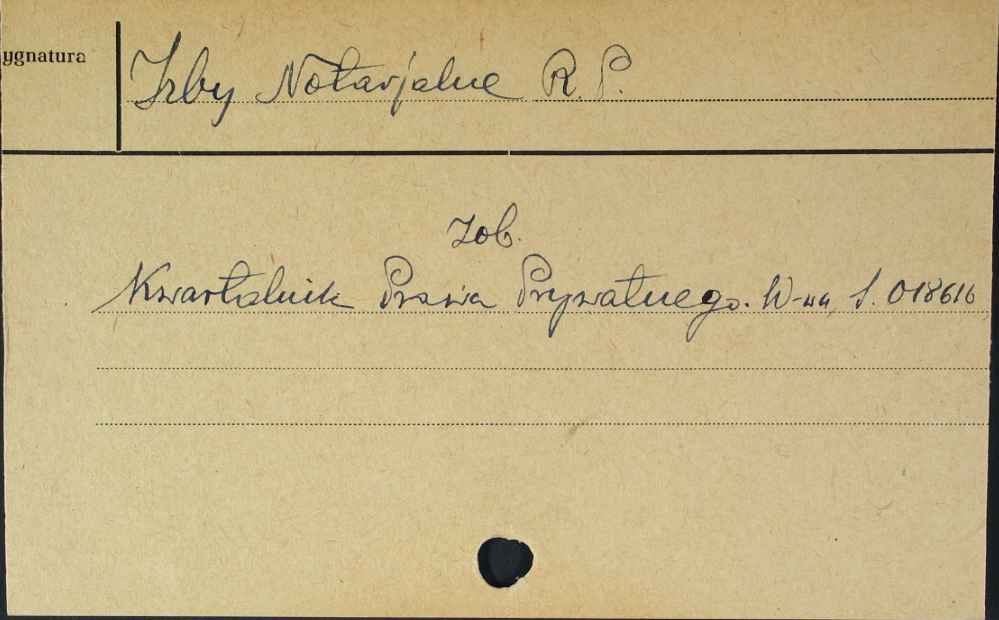 ygnatura
Izby Notarjalne R. P.
zob.
Kwartalnik Prawa Prywatnego. W-wa, S. 018616